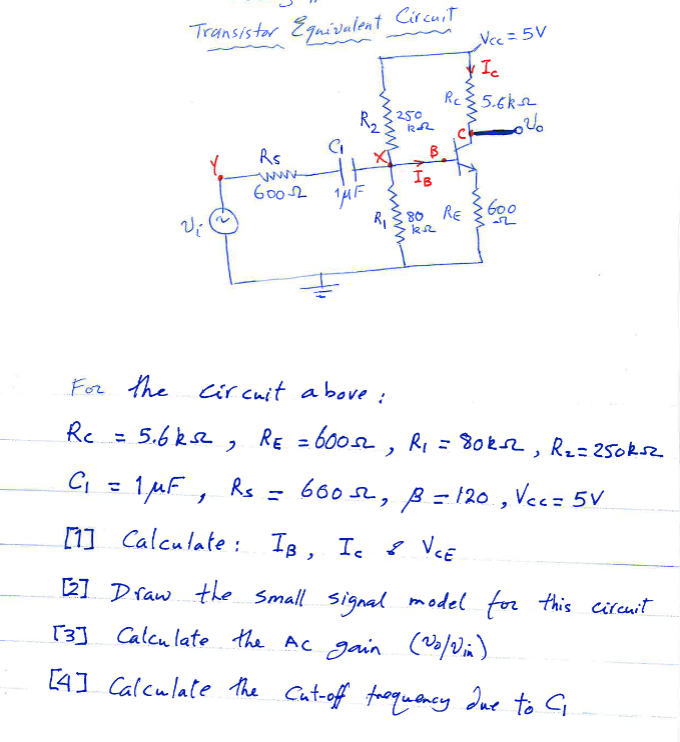 Transistor Equivalent Circuit
Vcc = 5V
Ic
Rc 5.6kΩ
R2 250 kΩ
C Vo
C1
X B
Y Rs
IB
600Ω 1μF
Vi
R1 80 kΩ
RE 600 Ω
For the circuit above :
Rc = 5.6kΩ , RE = 600Ω , R1 = 80kΩ , R2 = 250kΩ
C1 = 1μF , Rs = 600Ω , β = 120 , Vcc = 5V
[1] Calculate : IB , Ic & VCE
[2] Draw the small signal model for this circuit
[3] Calculate the AC gain (Vo/Vin)
[4] Calculate the Cut-off frequency due to C1